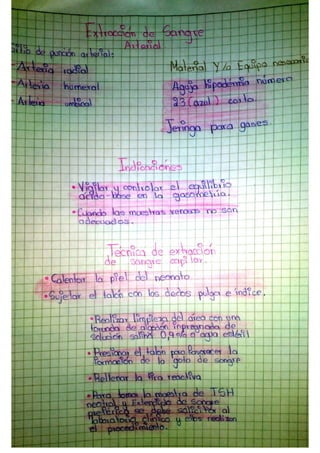 Extracción de Sangre
Arterial
Sitio de punción arterial:
Arteria radial
Arteria humeral
Arteria umbical
Material Y/o Equipo necesario
Aguja hipodermia número
23 (azul) corta
Jeringa para gases
Indicaciones
• Vigilar y controlar el equilibrio
ácido-base en la gasometría.
• Cuando las muestras venosas no son
adecuadas.
Técnica de extracción
de sangre capilar.
• Calentar la piel del neonato
• Sujetar el talón con los dedos pulga e índice.
• Realizar limpieza del área con una
torunda de algodón impregnada de
solución salina 0,9% o agua estéril
• Presionar el talón para favorecer la
formación de la gota de sangre
• Rellenar la tira reactiva
• Para tomar la muestra de TSH
neonatal y Extendido de Sangre
periférica se debe solicitar al
laboratorio clínico y ellos realizan
el procedimiento.